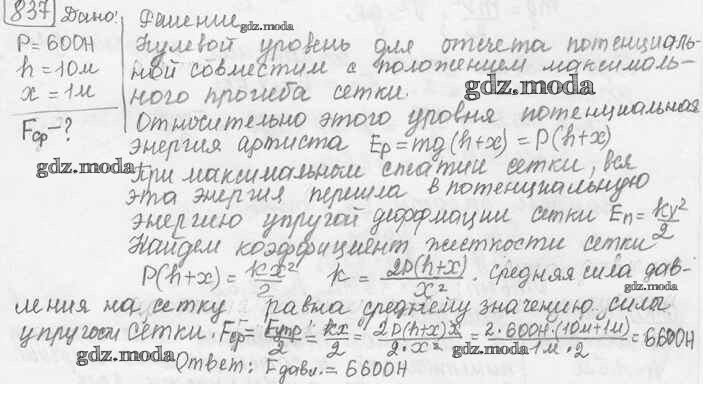 837 Дано: Решение gdz.moda
P=600Н Нулевой уровень для отсчета потенциаль-
h=10м ной совместим с положением максималь-
x=1м ного прогиба сетки. gdz.moda
Относительно этого уровня потенциальная
Fср-? энергия артиста Ep=mg(h+x)=P(h+x)
gdz.moda При максимальном сжатии сетки, вся
эта энергия перешла в потенциальную
энергию упругой деформации сетки Eп=ky²/2
Найдем коэффициент жесткости сетки
P(h+x)=kx²/2 k=2P(h+x)/x². средняя сила дав-
gdz.moda
ления на сетку равна среднему значению силы
упругости сетки. Fср=Fупр/2=kx/2=2P(h+x)x/2·x²=2·600Н·(10м+1м)/1м·2=6600Н
gdz.moda gdz.moda
Ответ: Fдавл.=6600Н